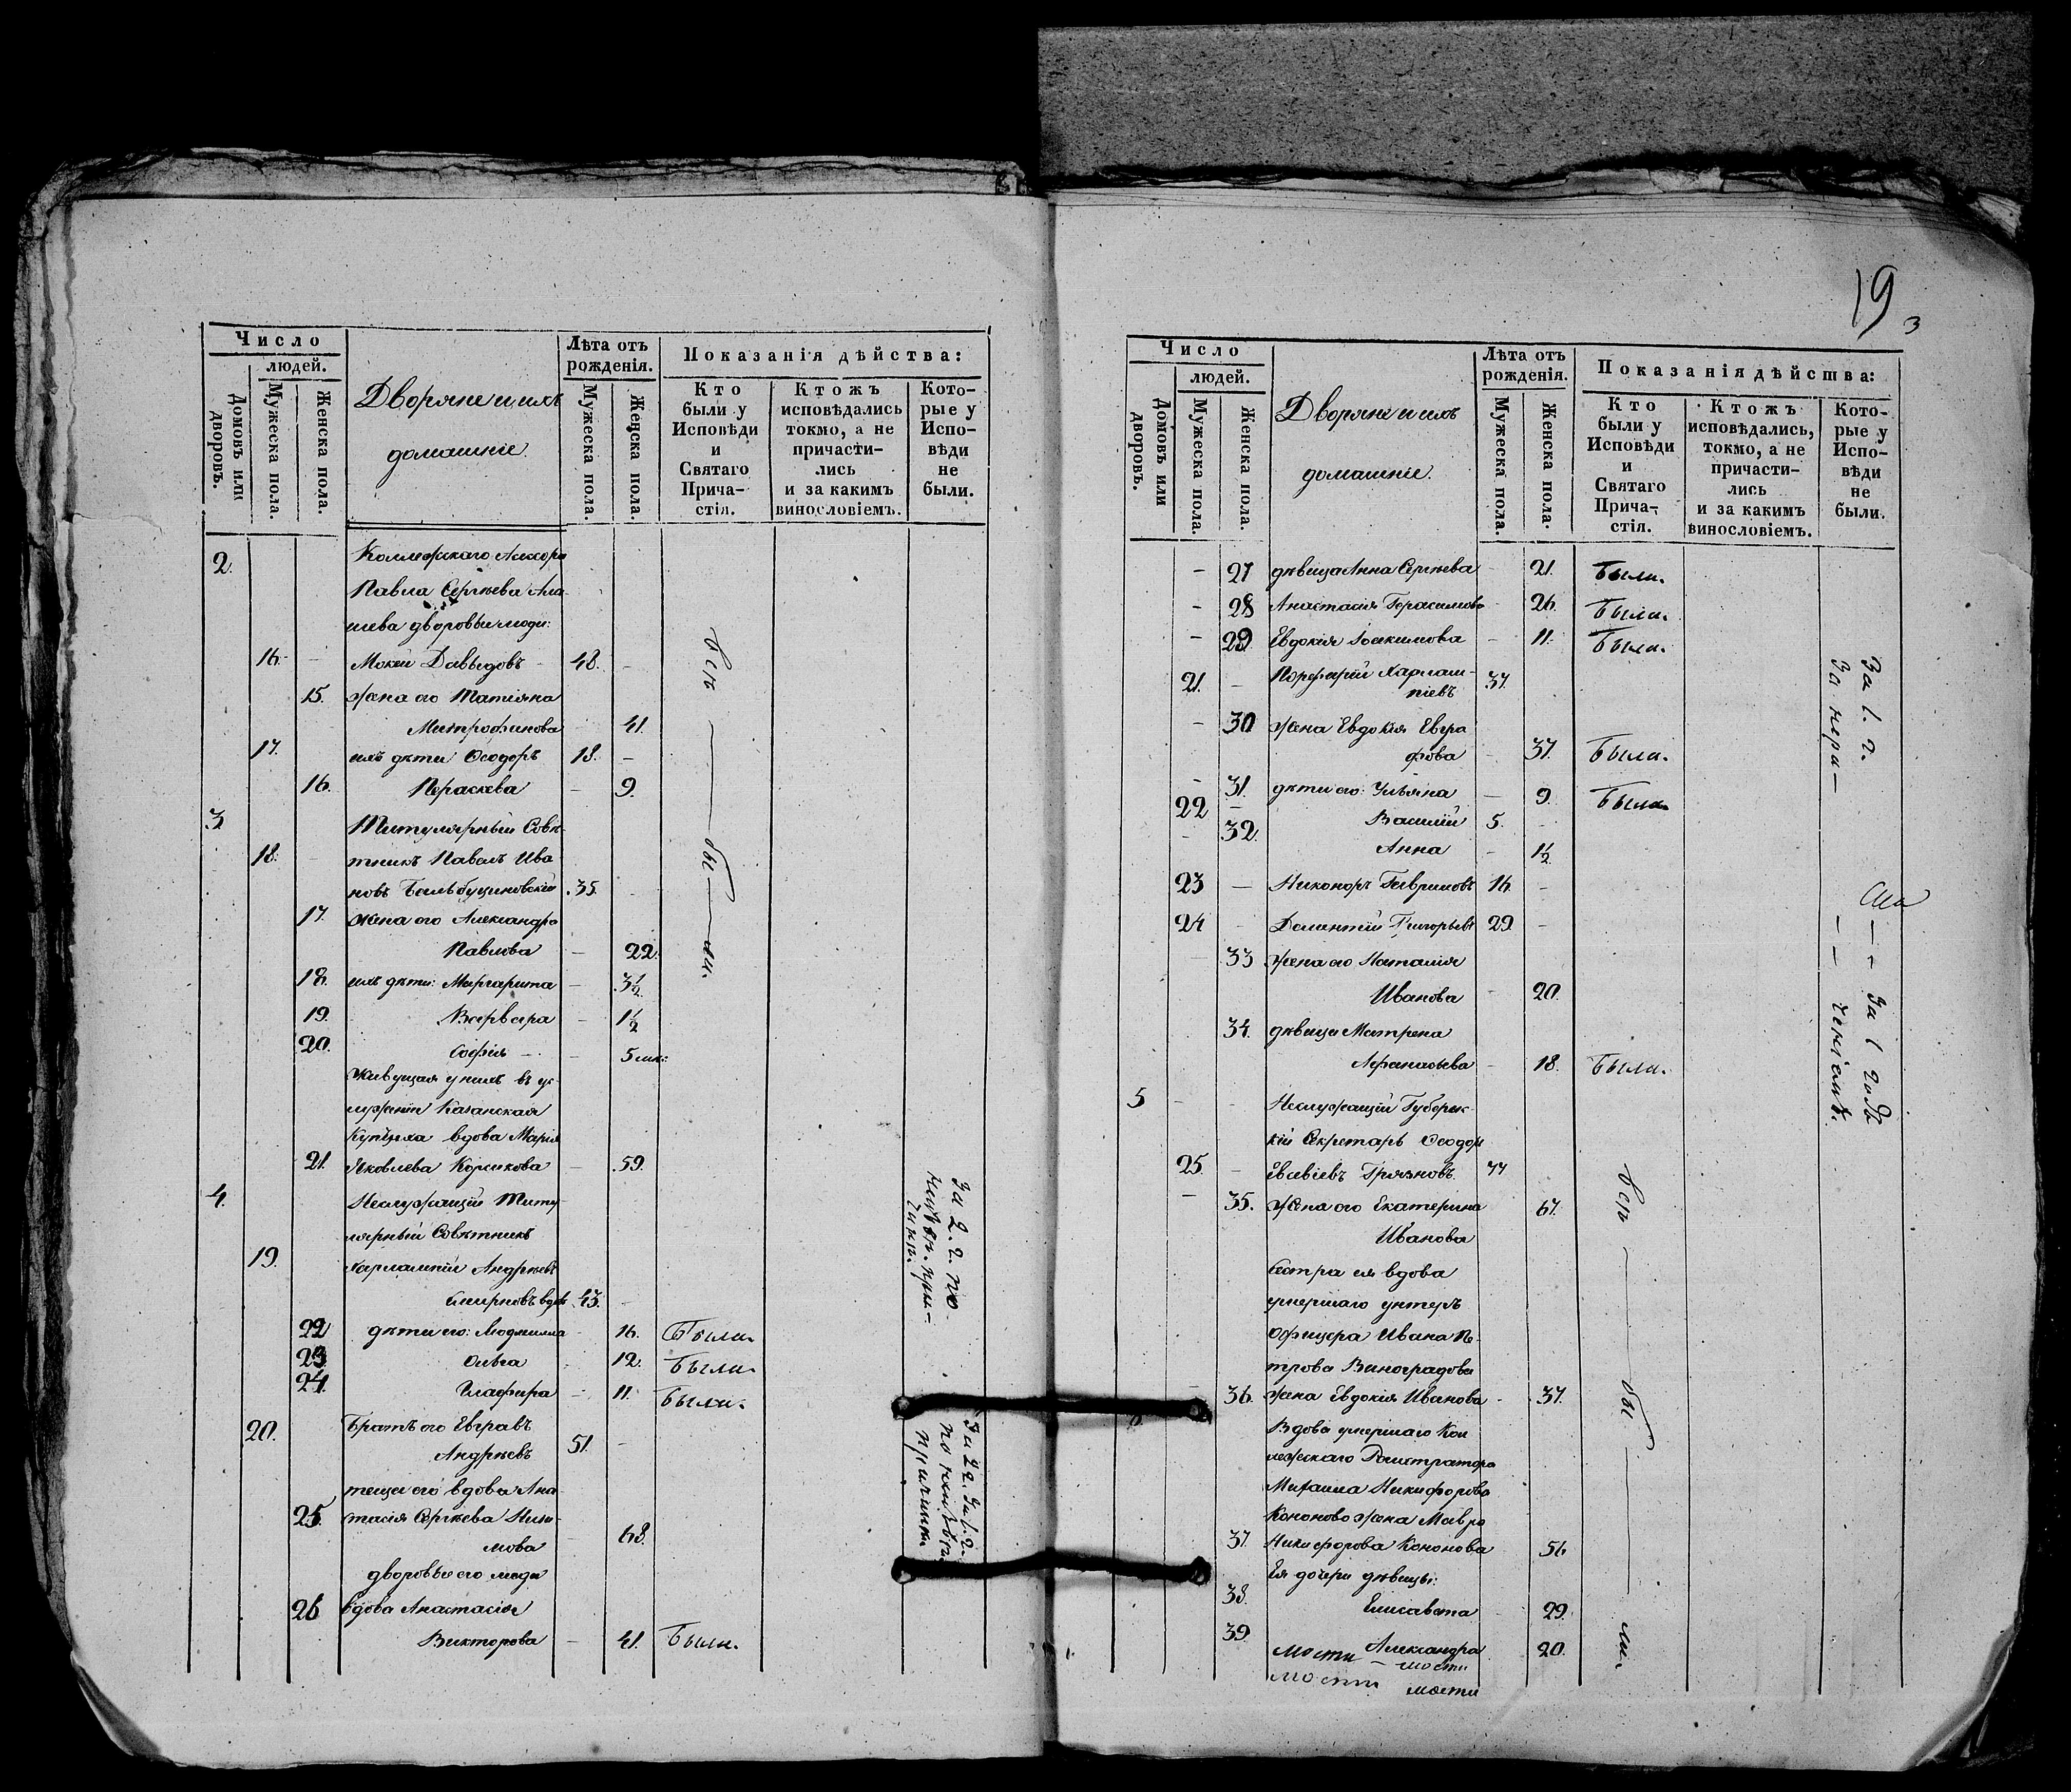 Число
людей.
Домовъ или дворовъ.
Мужеска пола.
Женска пола.
Дворяне и ихъ
домашніе.
Лѣта отъ
рожденія.
Мужеска пола.
Женска пола.
Показанія дѣйства:
Кто
были у
Исповѣди
и
Святаго
Прича-
стія.
Ктожъ
исповѣдались
токмо, а не
причасти-
лись
и за какимъ
винословіемъ.
Кото-
рые у
Испо-
вѣди
не
были.
2. Коллежскаго Ассесора
Павла Сергѣева Ала-
шева дворовые люди:
16. - Мокей Давыдовъ - 48. -
15. жена его Татіяна
Митрофанова 41.
17. ихъ дѣти Ѳеодоръ 18. -
16. Параскева - 9.
3. Титулярный Совѣ-
18. - тникъ Павелъ Ива-
новъ 35.
17. жена его Александра
Павлова - 22.
18. ихъ дѣти: Маргарита - 3½
19. Варвара - 1½
20. Софія - - 5 мѣс:
Живущая у нихъ въ ус-
луженіи Казанская
Купчиха вдова Марія
21. Яковлева - 59.
4. Неслужащій Титу-
лярный Совѣтникъ
19. Харлампій Андреевъ
Смирновъ вдов 43. -
22 дѣти его: Людмилла - 16. Были.
23. Ольга - 12. Были.
24. Глафира - 11. Были.
20. Братъ его Евграфъ
Андреевъ 51. -
теща его вдова Ана-
25. стасія Сергѣева
68.
дворовые его люди
26 вдова Анастасія
Викторова - 41. Были.
всѣ — бы — ли.
За 2. г. по
19
3
Число
людей.
Домовъ или дворовъ.
Мужеска пола.
Женска пола.
Дворяне и ихъ
домашніе.
Лѣта отъ
рожденія.
Мужеска пола.
Женска пола.
Показанія дѣйства:
Кто
были у
Исповѣди
и
Святаго
Прича-
стія.
Ктожъ
исповѣдались,
токмо, а не
причасти-
лись
и за какимъ
винословіемъ.
Кото-
рые у
Испо-
вѣди
не
были.
- 27 дѣвица Анна Сергѣева - 21. Были.
- 28 Анастасія Герасимова - 26. Были.
- 29 Евдокія Іоакимова - 11. Были.
21. - Порфирій Харлам-
піевъ 37.
- 30 жена Евдокія Евгра
фова - 37. Были.
- 31. дѣти его: Ульяна - 9. Были
22 - Василій 5. -
- 32. Анна - 1½
23 - Никоноръ Гавриловъ 16. -
24 - Дементій Григорьевъ 29. -
- 33 жена его Наталія
Иванова - 20.
34. дѣвица Матрена
Афанасьева - 18. Были.
5 - - Неслужащій Губернс-
кій Секретарь Ѳеодоръ
25 - Грязновъ. 77
- 35. жена его Екатерина 67.
Иванова
сестра ея вдова
умершаго унтеръ
Офицера Ивана Пе-
трова Виноградова
36. жена Евдокія Иванова - 37.
Вдова умершаго Кол
лежскаго Регистратора
Михаила Никифорова
Кононова жена Мавра
37. Никифорова Кононова 56
Ея дочери дѣвицы:
38. Елисавета 29.
39. Александра 20.
мости мости
мости мости
За 1. г.
За нера-
За 1 годъ
ченіемъ.
всѣ — бы — ли.